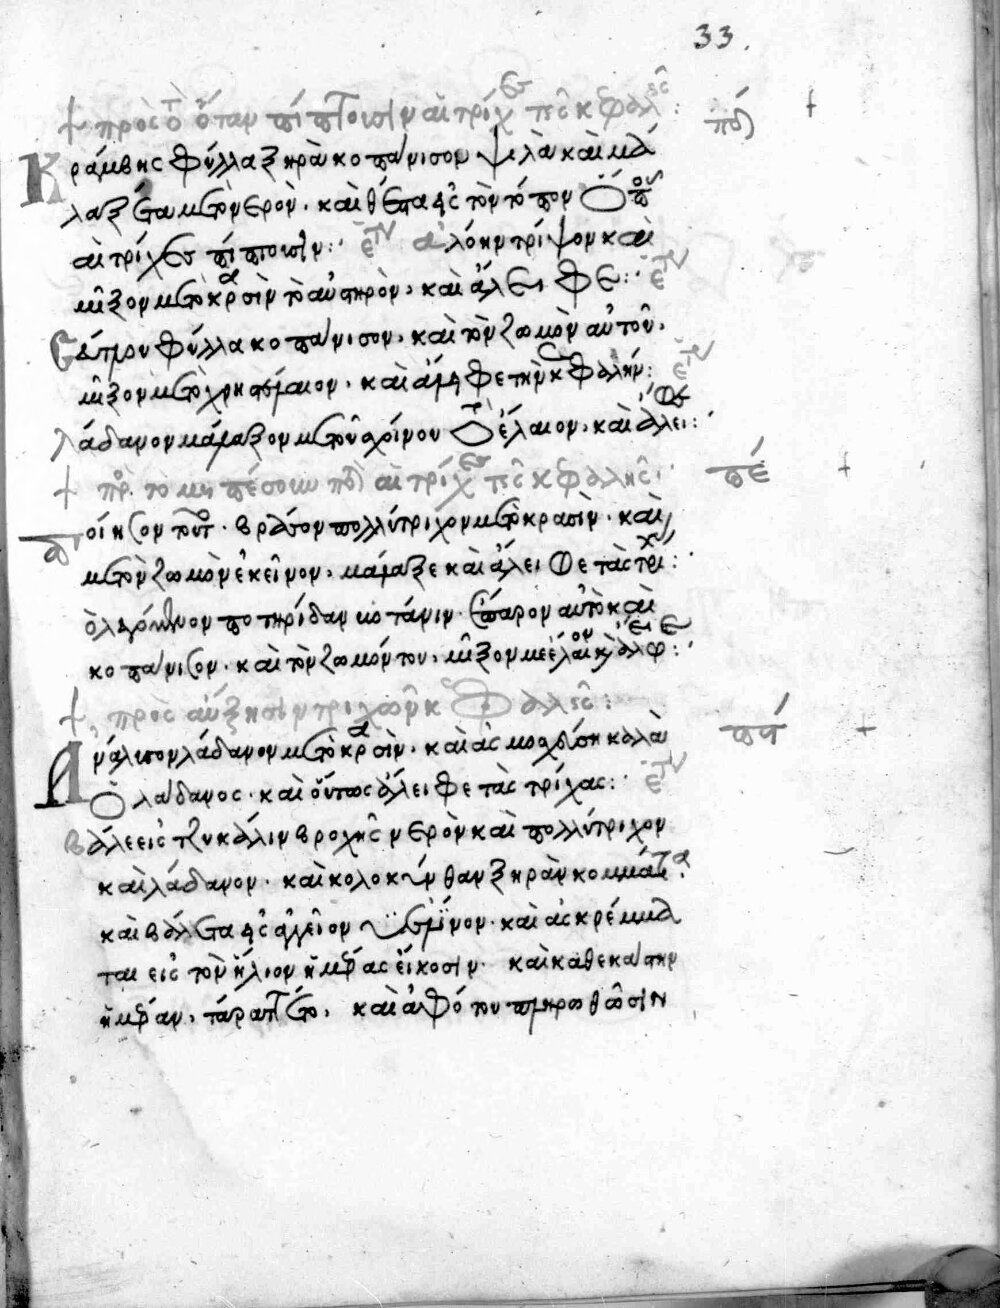 33.
πρὸς τὸ ὅταν πίπτουσιν αἱ τρίχες τῆς κεφαλῆς: πδ
Κράμβης φύλλα ξηρὰ κοπάνισον ψιλὰ καὶ μά
λαξέ τα μετὸ νερὸν· καὶ θέτα εἰς τὸν τόπον ὅπου
αἱ τρίχες πίπτουσιν: ἕτερον ἀλόην τρίψον καὶ
μῖξον μετὸ κρασὶν τὸ αὐστηρὸν, καὶ ἄλειφε: ἕτερον
Σεύτλου φύλλα κοπάνισον, καὶ τὸν ζωμὸν αὐτοῦ,
μῖξον μετὸ καὶ ἄλειφε τὴν κεφαλήν: ἕτερον
λάδανον μάλαξον μετοῦ σχοίνου τὸ ἔλαιον, καὶ ἄλειφε:
πρὸς τὸ μὴ πέσουν ποτὲ αἱ τρίχες τῆς κεφαλῆς: πέ
ποίησον τοῦτο· βράσον πολλύτριχον μετὸ κρασὶν· καὶ
μετὸν ζωμὸν ἐκεῖνον, μάλαξε καὶ ἄλειφε τὰς τρίχας:
κοπάνισον· καὶ τὸν ζωμόν του, μῖξον με ἔλαιον καὶ ἄλειφε:
πρὸς αὔξησιν τριχῶν κεφαλῆς: πϛ
Ἀνάλυσον λάδανον μετὸ κρασὶν· καὶ ἂς μοσχίση καλὰ
ὁ λάδανος· καὶ οὕτως ἄλειφε τὰς τρίχας: ἕτερον
βάλε εἰς τζυκάλιν βροχῆς νερὸν καὶ πολλύτριχον
καὶ λάδανον· καὶ κολοκύνθαν ξηρὰν κομμάτια·
καὶ βάλε τα εἰς ἀγγεῖον· καὶ ἂς κρέμμα
ται εἰς τὸν ἥλιον ἡμέρας εἴκοσιν· καὶ καθεκάστην
ἡμέραν, τάραττέ το, καὶ ἀφότου πληρωθῶσιν